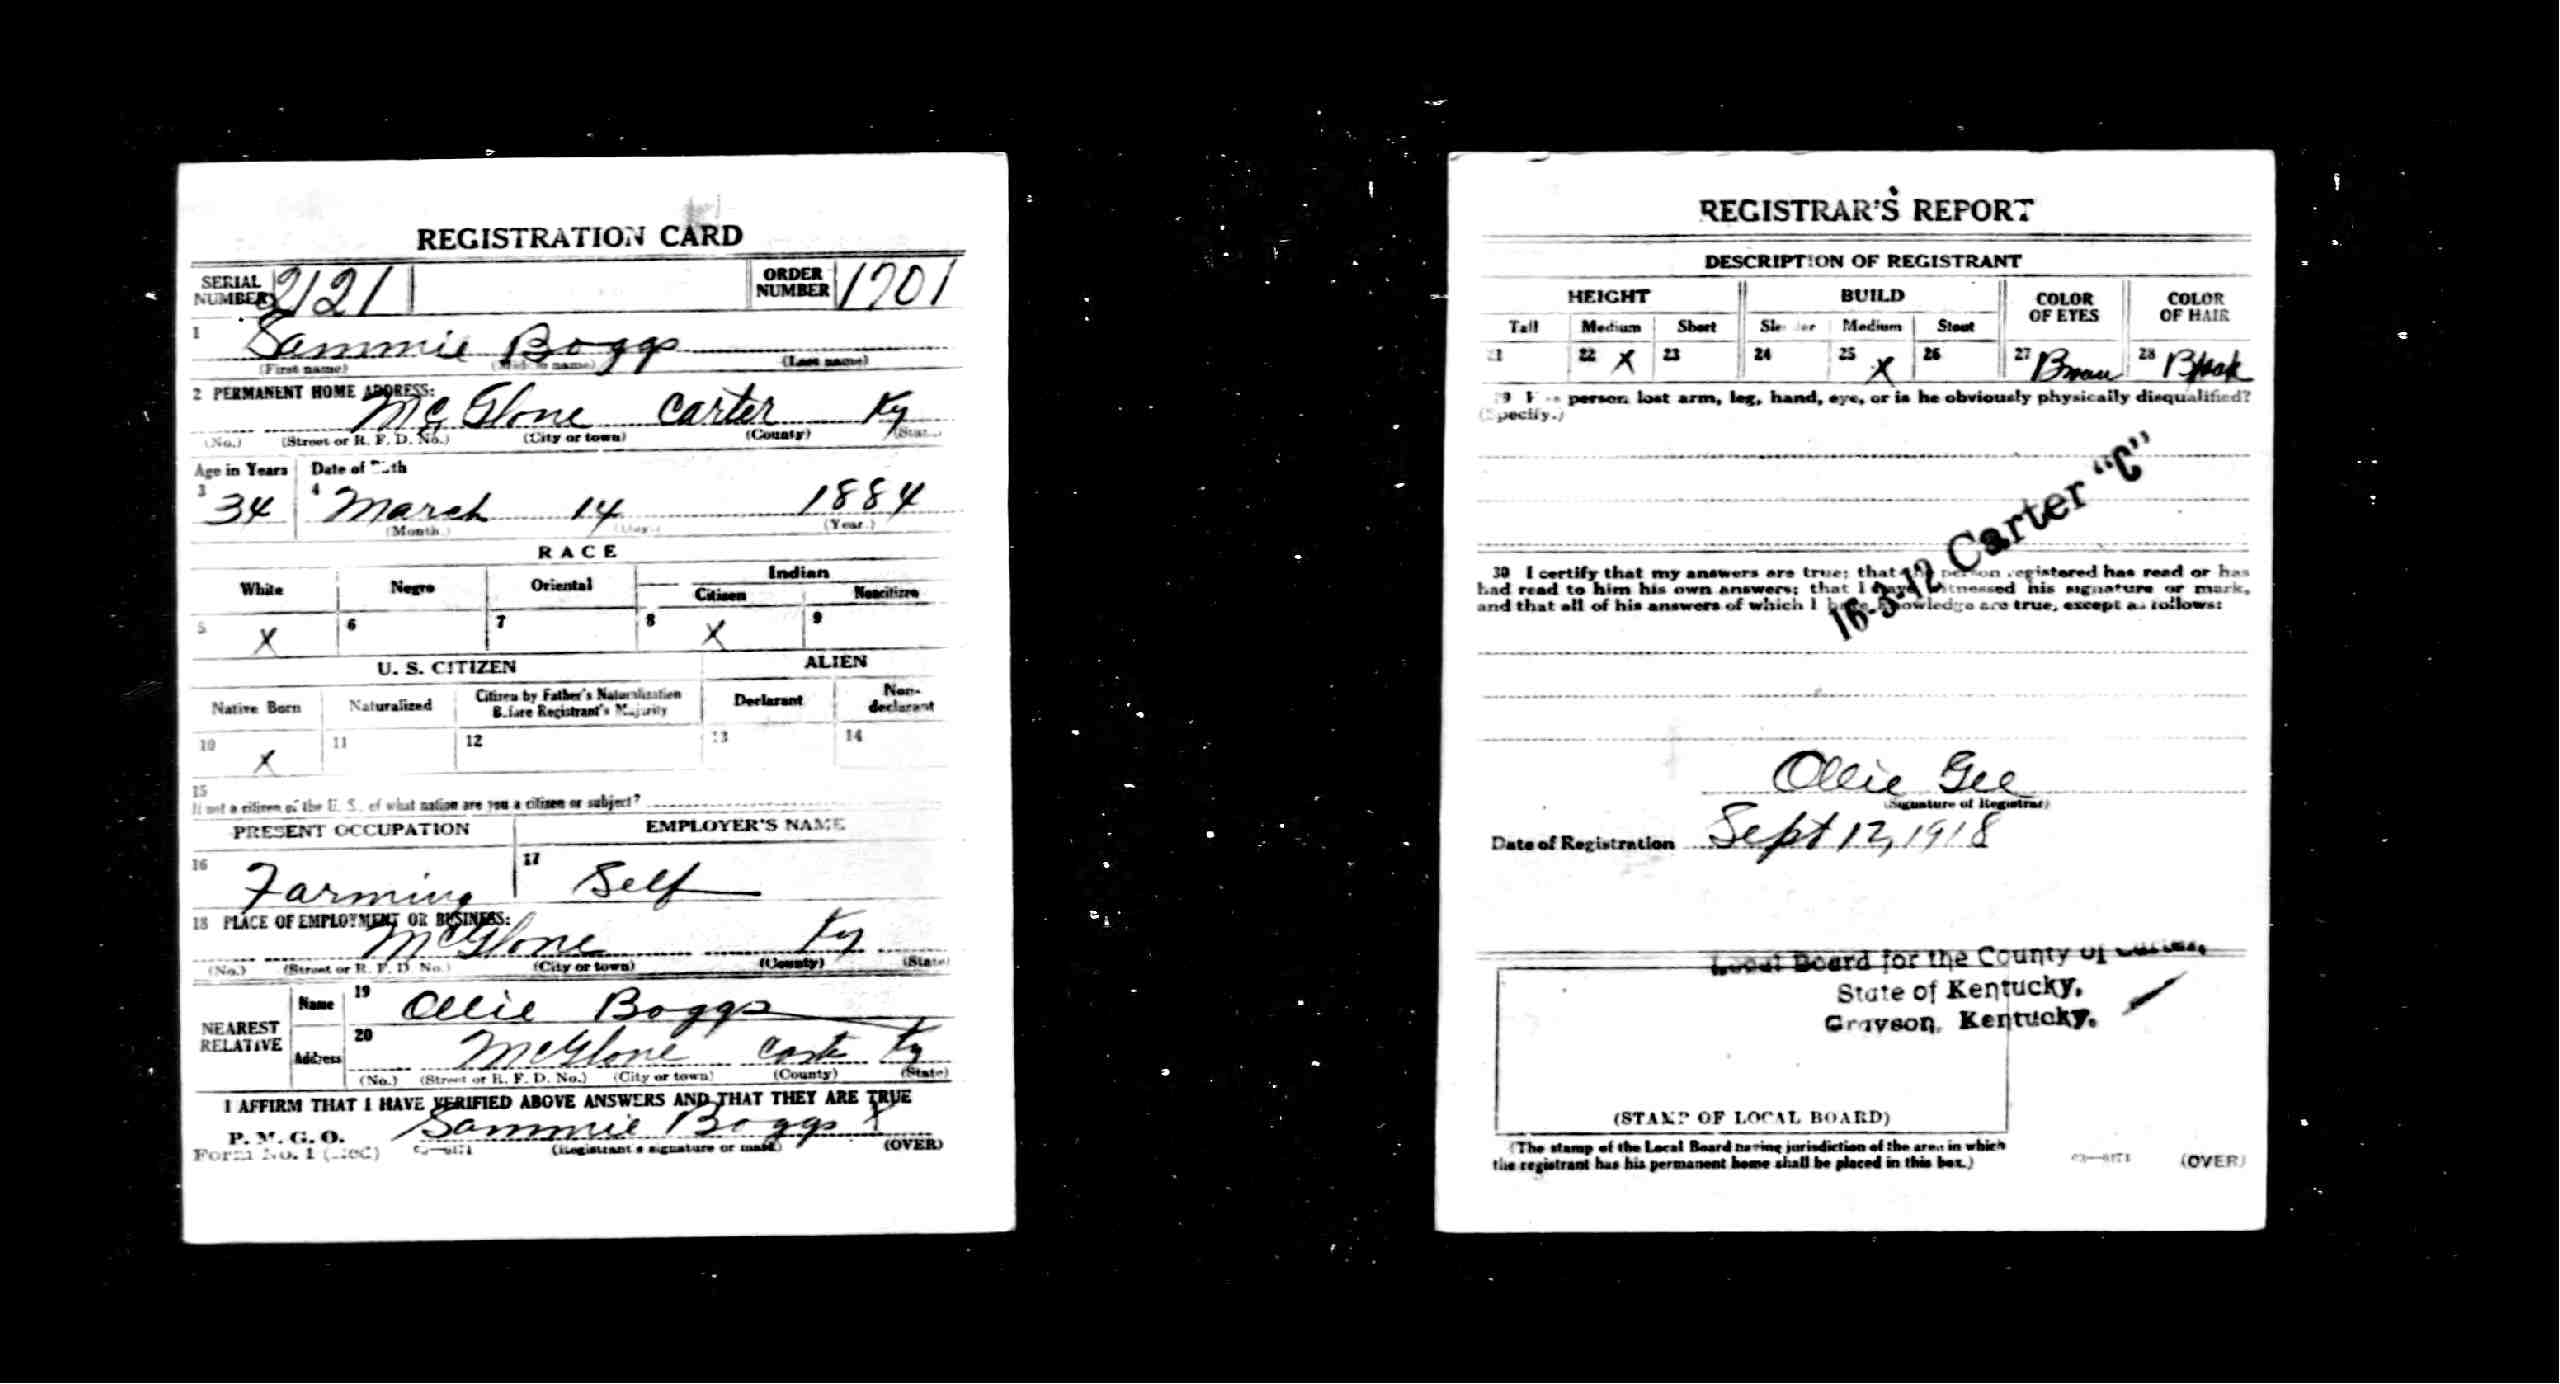 REGISTRATION CARD
SERIAL NUMBER 2121 ORDER NUMBER 1701
1 Sammie Boggs
(First name) (Middle name) (Last name)
2 PERMANENT HOME ADDRESS:
McGlone Carter Ky
(No.) (Street or R. F. D. No.) (City or town) (County) (State)
Age in Years Date of Birth
3 34 4 March 14 1884
(Month.) (Day.) (Year.)
RACE
White Negro Oriental Indian
Citizen Noncitizen
5 X 6 7 8 X 9
U. S. CITIZEN ALIEN
Native Born Naturalized Citizen by Father's Naturalization Before Registrant's Majority Declarant Non-declarant
10 X 11 12 13 14
15
If not a citizen of the U. S., of what nation are you a citizen or subject?
PRESENT OCCUPATION EMPLOYER'S NAME
16 Farming 17 Self
18 PLACE OF EMPLOYMENT OR BUSINESS:
McGlone Ky
(No.) (Street or R. F. D. No.) (City or town) (County) (State)
NEAREST RELATIVE Name 19 Ollie Boggs
Address 20 McGlone Cart Ky
(No.) (Street or R. F. D. No.) (City or town) (County) (State)
I AFFIRM THAT I HAVE VERIFIED ABOVE ANSWERS AND THAT THEY ARE TRUE
P. M. G. O.
Form No. 1 (Red) Sammie Boggs X
(Registrant's signature or mark) (OVER)
REGISTRAR'S REPORT
DESCRIPTION OF REGISTRANT
HEIGHT BUILD COLOR OF EYES COLOR OF HAIR
Tall Medium Short Slender Medium Stout
21 22 X 23 24 25 X 26 27 Brown 28 Black
29 person lost arm, leg, hand, eye, or is he obviously physically disqualified?
(Specify.)
16-3-12 Carter "C"
30 I certify that my answers are true; that the person registered has read or has
had read to him his own answers; that I have witnessed his signature or mark,
and that all of his answers of which I have knowledge are true, except as follows:
Ollie Gee
(Signature of Registrar)
Date of Registration Sept 12, 1918
Local Board for the County of Carter,
State of Kentucky,
Grayson, Kentucky.
(STAMP OF LOCAL BOARD)
(The stamp of the Local Board having jurisdiction of the area in which
the registrant has his permanent home shall be placed in this box.)
(OVER)